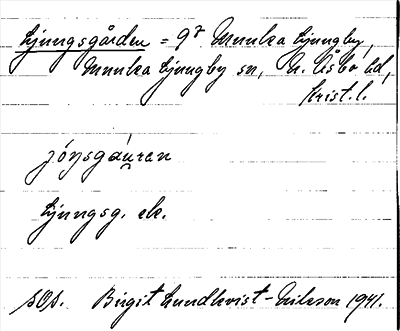 Ljungsgården = 9² Munka Ljungby,
Munka Ljungby sn, N. Åsbo hd,
Krist. l.
jóṉsgáu̯ran
Ljungsg. ek.
SOS. Birgit Lundkvist-Nilsson 1941.